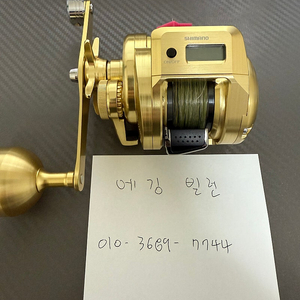 SHIMANO
에깅 빌런
010-3669-7744